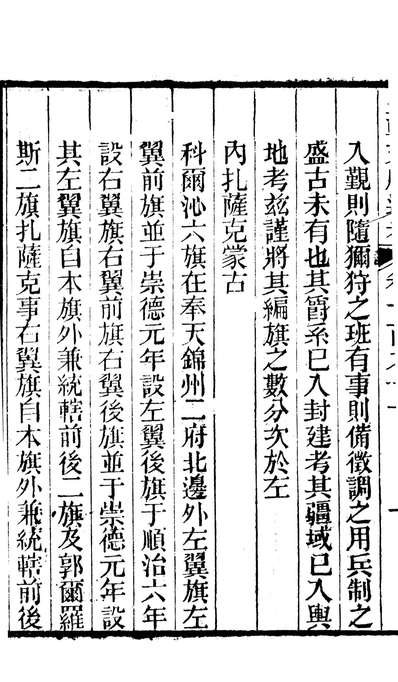 入覲則隨獮狩之班有事則備徵調之用兵制之
盛古未有也其爵系已入封建考其疆域已入輿
地考兹謹將其編旗之數分次於左
內扎薩克蒙古
科爾沁六旗在奉天錦州二府北邊外左翼旗左
翼前旗並于崇德元年設左翼後旗于順治六年
設右翼旗右翼前旗右翼後旗並于崇德元年設
其左翼旗自本旗外兼統轄前後二旗及郭爾羅
斯二旗扎薩克事右翼旗自本旗外兼統轄前後